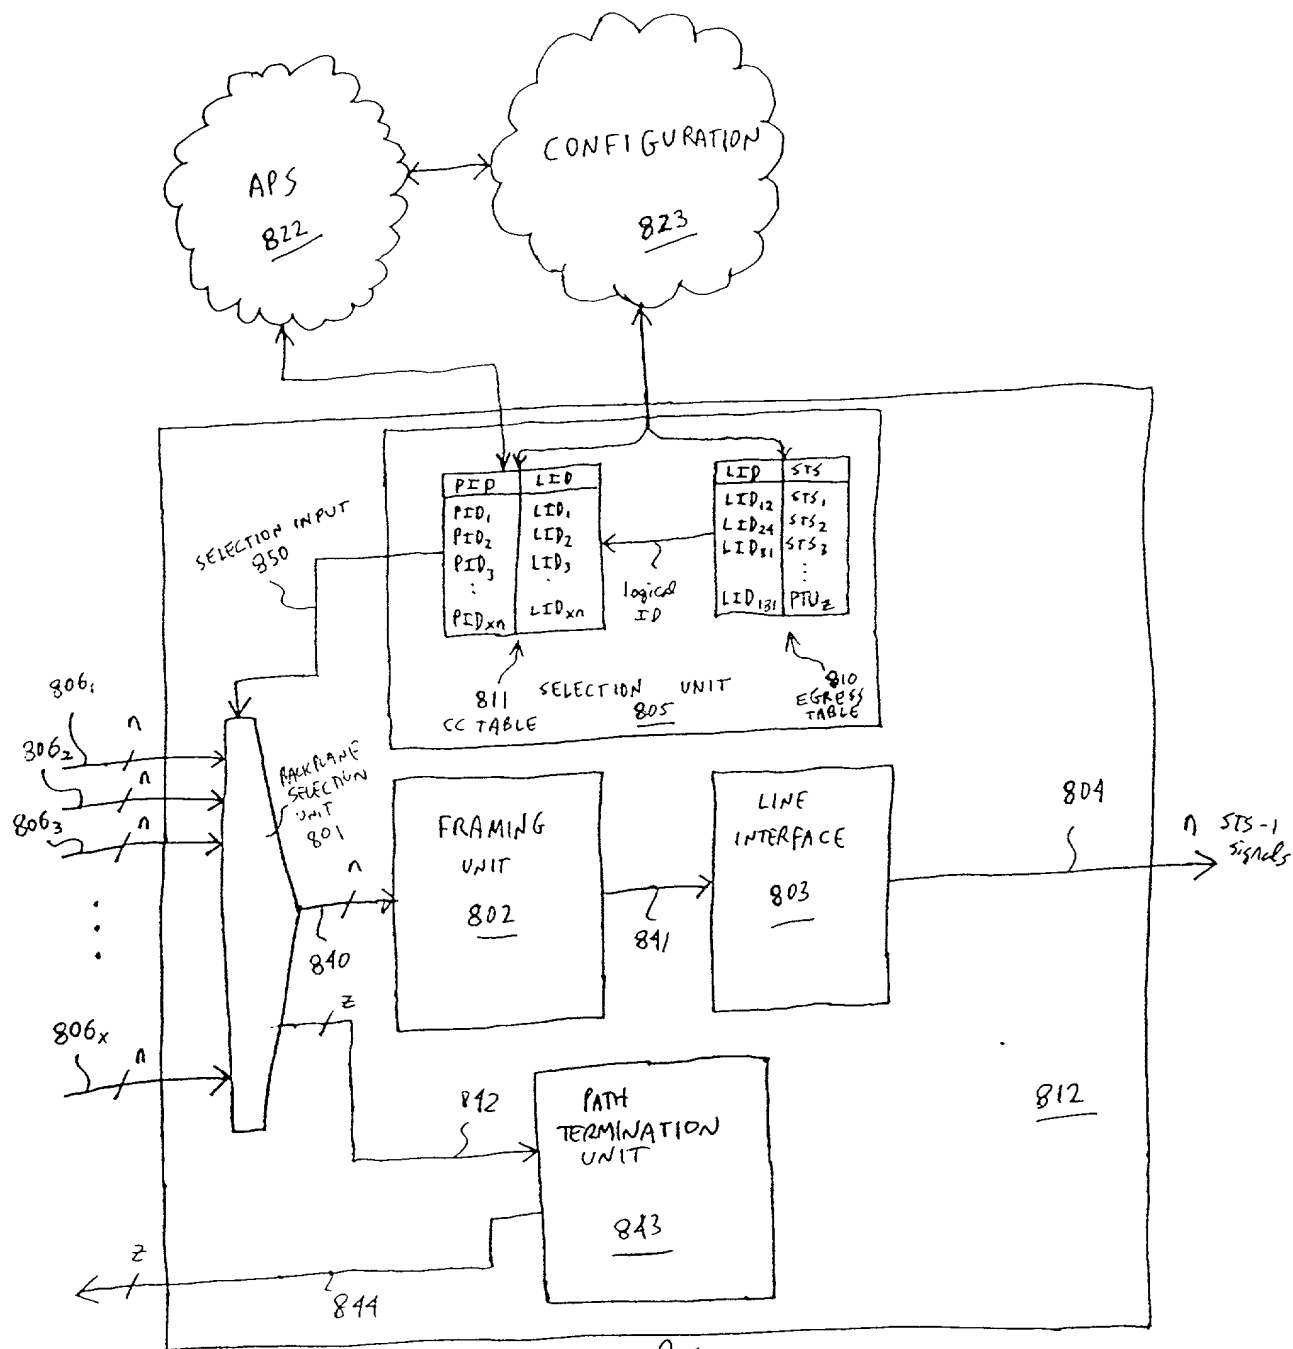 CONFIGURATION
823
APS
822
SELECTION INPUT
850
PID LID
PID1 LID1
PID2 LID2
PID3 LID3
: .
PIDxn LIDxn
LID STS
LID12 STS1
LID24 STS2
LID31 STS3
:
LID131 PTUz
logical
ID
811
CC TABLE
SELECTION UNIT
805
810
EGRESS
TABLE
8061
n
8062
n
8063
n
806x
n
BACKPLANE
SELECTION
UNIT
801
840
n
FRAMING
UNIT
802
841
LINE
INTERFACE
803
804
n STS-1
signals
z
842
PATH
TERMINATION
UNIT
843
812
z
844